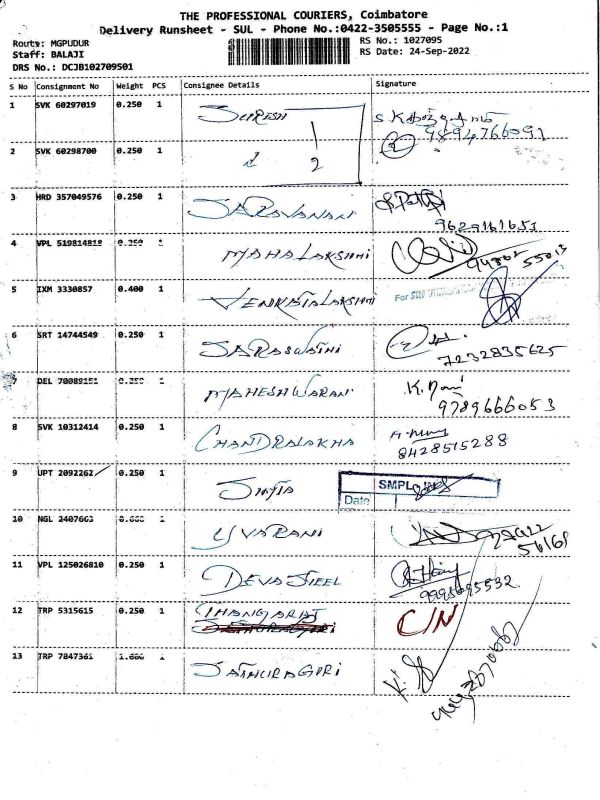 THE PROFESSIONAL COURIERS, Coimbatore
Delivery Runsheet - SUL - Phone No.:0422-3505555 - Page No.:1
Route: MGPUDUR RS No.: 1027095
Staff: BALAJI RS Date: 24-Sep-2022
DRS No.: DCJB102709501
S No Consignment No Weight PCS Consignee Details Signature
1 SVK 60297019 0.250 1 SURESH
9894766091
2 SVK 60298700 0.250 1 1 2
3 HRD 357049576 0.250 1 SARAVANAN
9629161651
4 VPL 519814818 0.250 1 MAHALAKSHMI
5 IXM 3330857 0.400 1 VENKATALAKSHMI For SRI
6 SRT 14744549 0.250 1 SARASWATHI
7232835625
7 DEL 70089151 0.250 1 MAHESHWARAN K. Mani
9789666053
8 SVK 10312414 0.250 1 CHANDRALAKHA
8428515288
9 UPT 2092262 0.250 1 SMPL
Date
10 NGL 2407663 1 YUVARANI
11 VPL 125026810 0.250 1 DEVA STEEL
12 TRP 5315615 0.250 1 THANGARAJ C/N
13 TRP 7847361 1 SATHURAGIRI